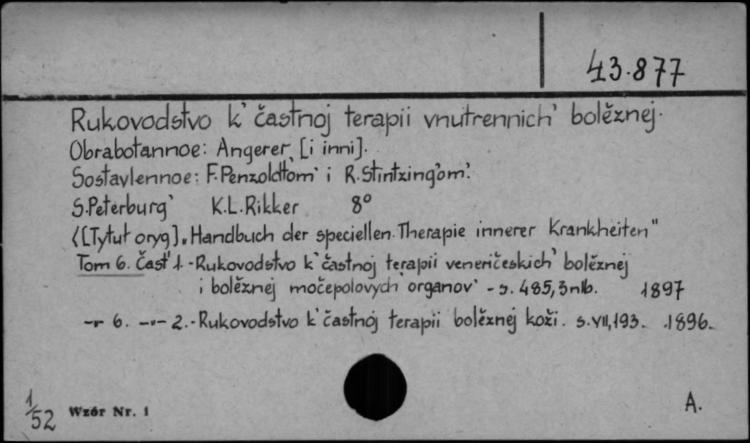 43.877
Rukovodstvo k' častnoj terapii vnutrennich' bolěznej.
Obrabotannoe: Angerer, [i inni].
Sostavlennoe: F.Penzoldtom' i R.Stintzing'om'.
S.Peterburg' K.L.Rikker 8°
([Tytuł oryg]. "Handbuch der speciellen Therapie innerer Krankheiten"
Tom 6. Čast' 1. - Rukovodstvo k' častnoj terapii veneričeskich' bolěznej
i bolěznej močepolovych' organov' - s. 485, 3 nlb. 1897
-"- 6. -"- 2. - Rukovodstvo k' častnoj terapii bolěznej koži. s. VII, 193. 1896.
1/52 Wzór Nr. 1
A.